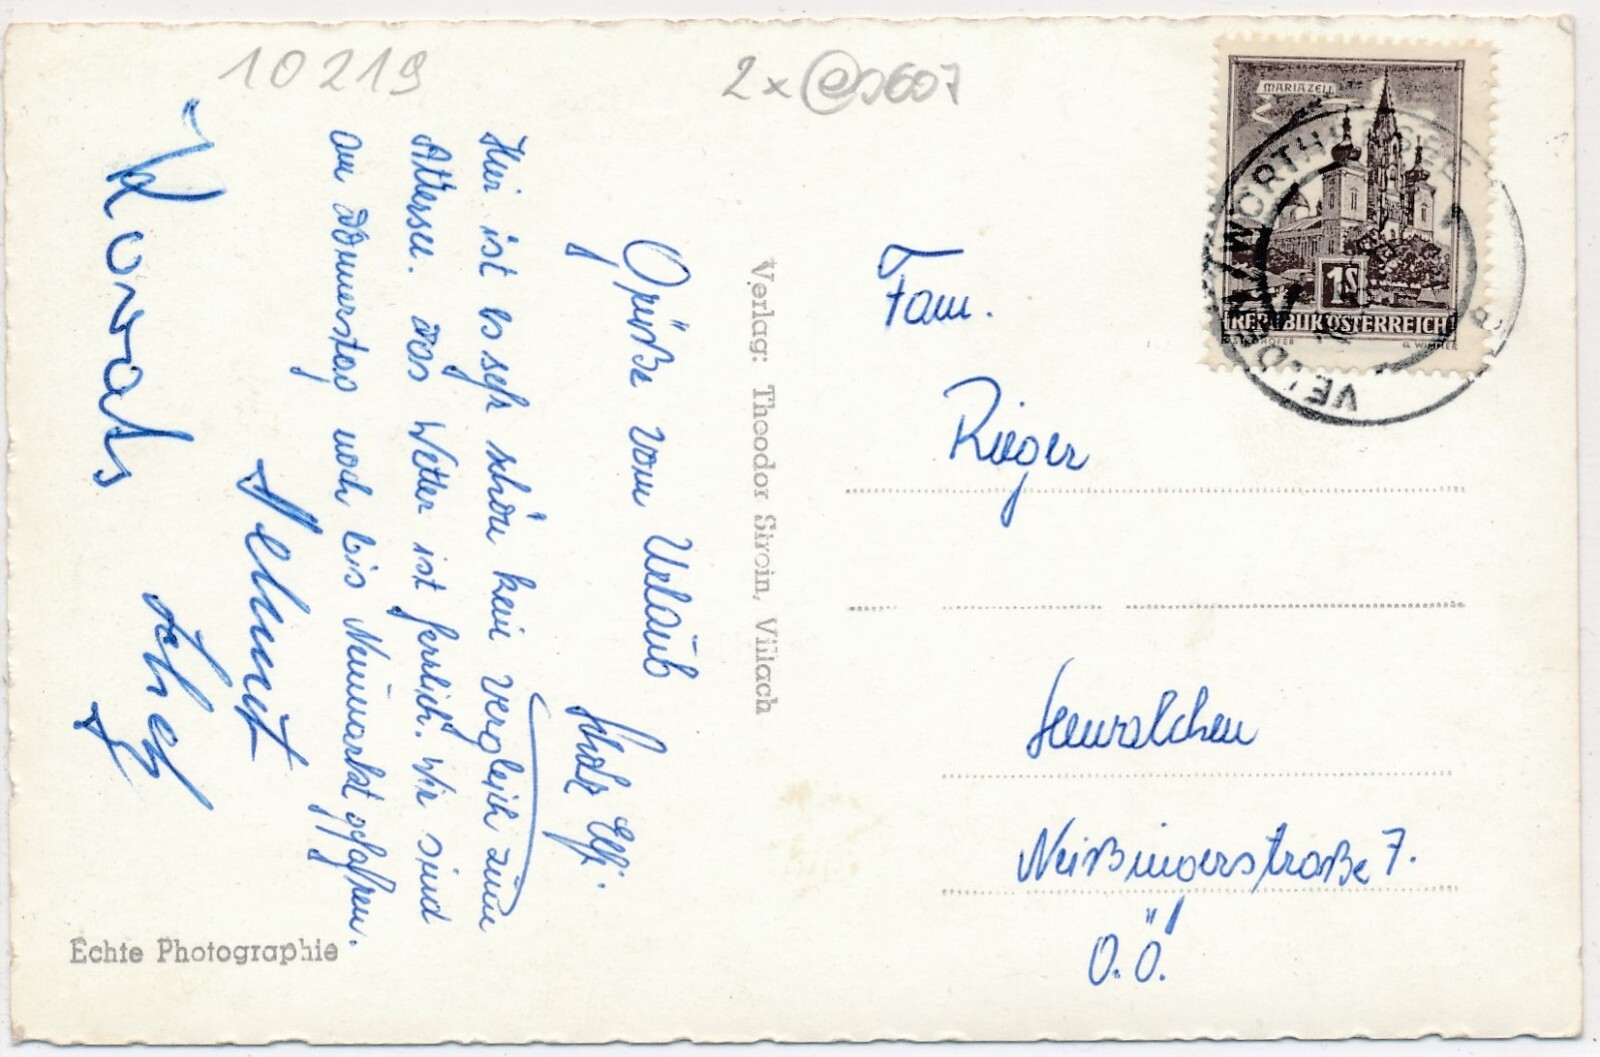 10219
2x
Hier ist es sehr schön kein Vergleich zum
Attersee. Das Wetter ist herrlich. Wir sind
am Donnerstag noch bis Neumarkt gefahren.
Grüße vom Urlaub
Elfi.
Helmut
Verlag: Theodor Stroin, Villach
Echte Photographie
MARIAZELL
1S
REPUBLIK ÖSTERREICH
G. WIMMER
VELDEN WÖRTHERSEE
Fam.
Rieger
Seewalchen
Neißingerstraße 7.
O.Ö.